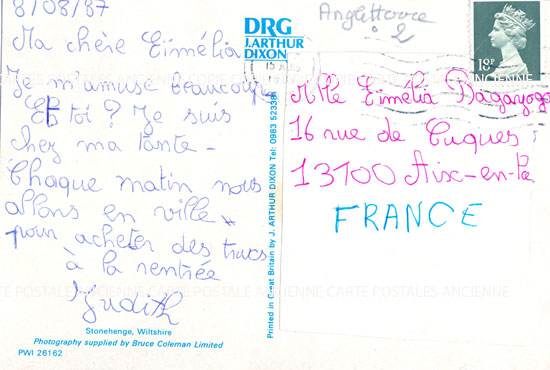 8/08/87
Ma chère Eimélia
Je m'amuse beaucoup
Et toi ? Je suis
chez ma tante -
Chaque matin nous
allons en ville
pour acheter des trucs
à la rentrée
Judith
Stonehenge, Wiltshire
Photography supplied by Bruce Coleman Limited
PWI 26162
DRG
J. ARTHUR
DIXON
Printed in Great Britain by J. ARTHUR DIXON Tel: 0983 523381
Angleterre
2
18P
Mlle Eimélia
16 rue de Cuques
13100 Aix-en-Pce
FRANCE
CARTE POSTALE ANCIENNE CARTE POSTALES ANCIENNE